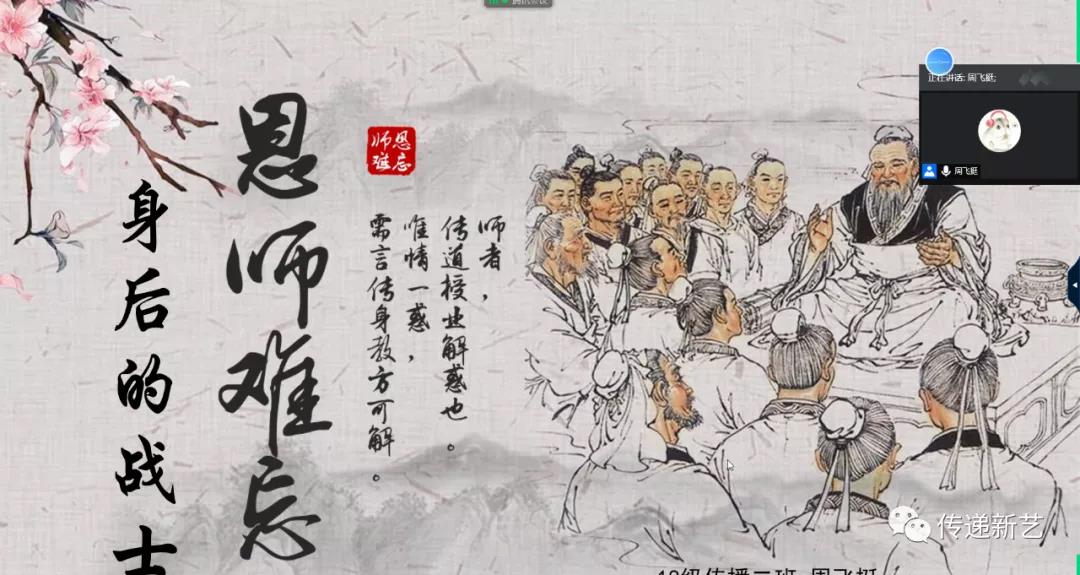 腾讯会议
恩师难忘
身后的战士
恩师
难忘
师者，
传道授业解惑也。
唯情一惑，
需言传身教方可解。
正在讲话: 周飞挺;
周飞挺
传递新艺
级传播二班 周飞挺